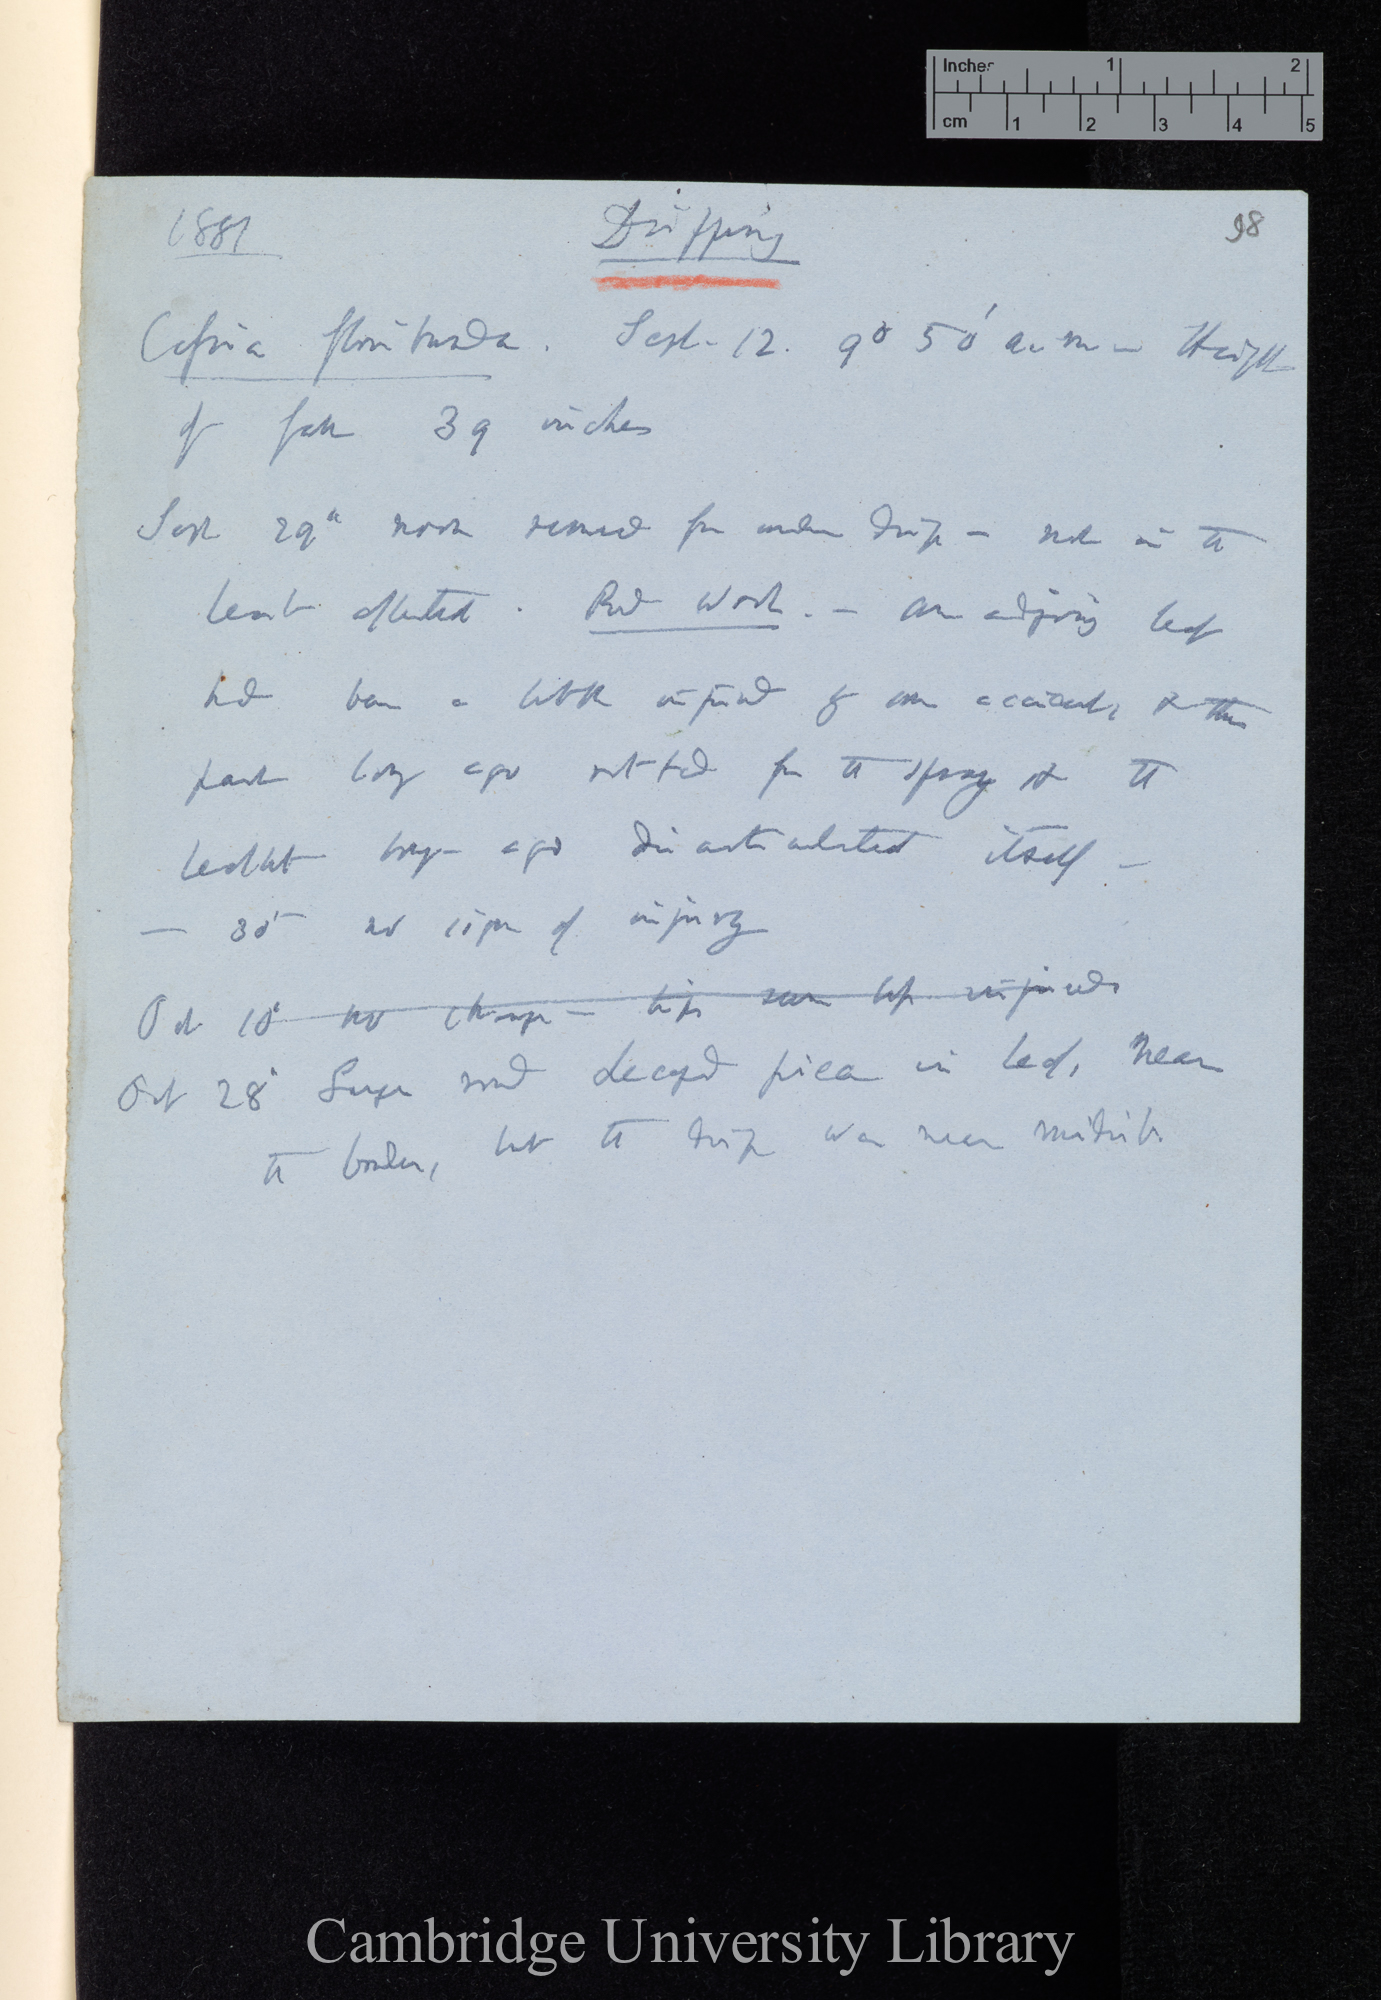 Inches 1 2
cm 1 2 3 4 5
1881 Dripping 98
Cassia floribunda. Sept. 12. 9° 50' a.m — Height
of fall 39 inches
Sept 29th noon removed from under drip — not in the
least affected. Red Wash. — an adjoining leaf
had been a little injured by some accident, & this
part long ago rotted from the spray & the
leaflet long ago disarticulated itself —
— 30th no sign of injury
Oct 10' no change — tips seem less injured
Oct 28' large round decayed piece in leaf, near
the border, but the drip was near midrib.
Cambridge University Library